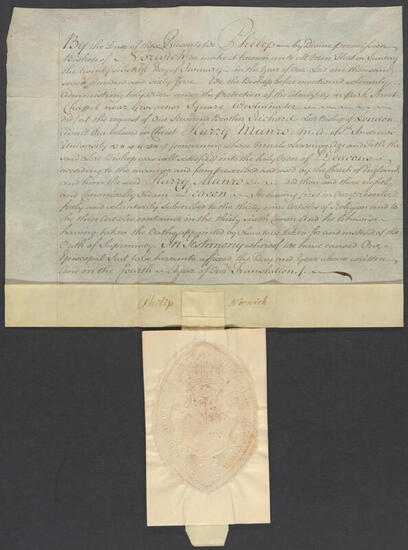 By the Tenor of these Presents We Philip by Divine permission
Bishop of Norwich do make it known unto all Men that on Sunday
the twenty seventh Day of January in the Year of Our Lord one thousand
seven hundred and sixty five We the Bishop before mentioned solemnly
administring holy Orders under the protection of the Almighty in Park Street
Chapel near Grosvenor Square Westminster
did at the request of Our Reverend Brother Richard Lord Bishop of London
admit Our beloved in Christ Harry Munro M.A. of St Andrews
University concerning whose Morals Learning Age and Title the
said Lord Bishop was well satisfied into the holy Order of Deacons
according to the manner and form prescribed and used by the Church of England
and him the said Harry Munro did then and there rightly
and Canonically Ordain Deacon He having first in Our presence
freely and voluntarily subscribed to the thirty nine Articles of Religion and to
the three Articles contained in the thirty sixth Canon And he likewise
having taken the Oaths appointed by Law to be taken for and instead of the
Oath of Supremacy In Testimony whereof we have caused Our
Episcopal Seal to be hereunto affixed the Day and Year above written
and in the fourth Year of Our Translation
Philip Norwich